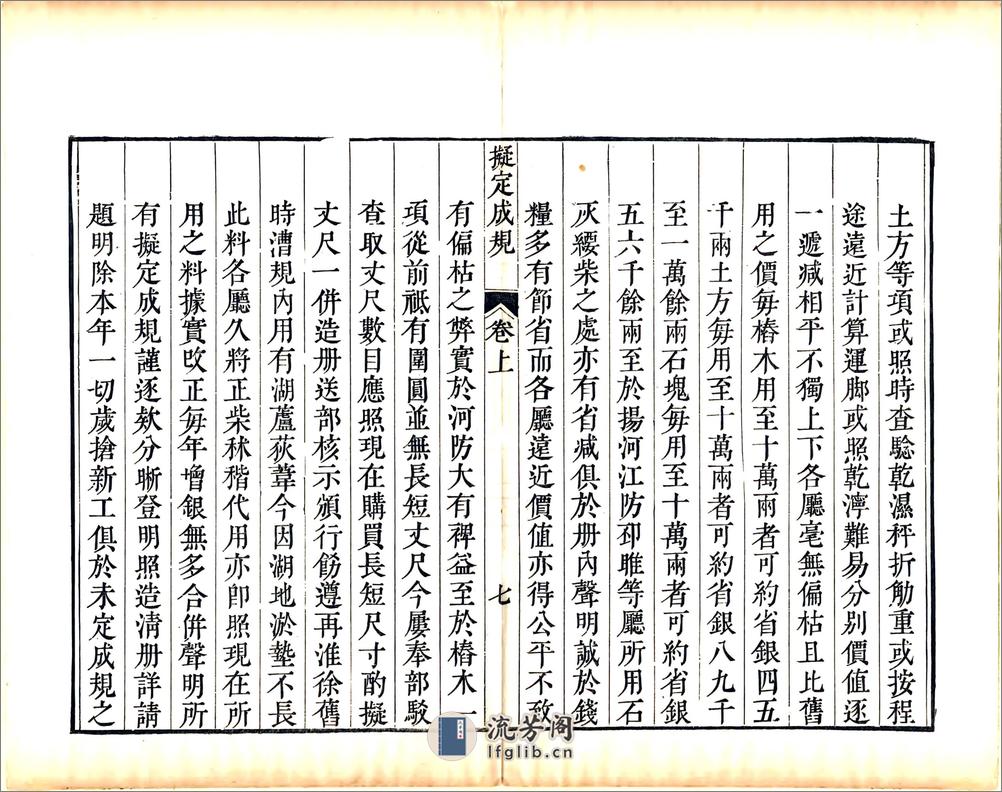 土方等項或照時查驗乾濕秤折觔重或按程
途遠近計算運脚或照乾濘難易分別價值逐
一遞減相平不獨上下各廳毫無偏枯且比舊
用之價每樁木用至十萬兩者可約省銀四五
千兩土方每用至十萬兩者可約省銀八九千
至一萬餘兩石塊每用至十萬兩者可約省銀
五六千餘兩至於揚河江防邳睢等廳所用石
灰纓柴之處亦有省減俱於册內聲明誠於錢
糧多有節省而各廳遠近價值亦得公平不致
擬定成規 卷上 七
有偏枯之弊實於河防大有裨益至於樁木一
項從前祗有圍圓並無長短丈尺今屢奉部駁
查取丈尺數目應照現在購買長短尺寸酌擬
丈尺一併造册送部核示頒行飭遵再淮徐舊
時漕規內用有湖蘆荻葦今因湖地淤墊不長
此料各廳久將正柴秫稭代用亦卽照現在所
用之料據實改正每年增銀無多合併聲明所
有擬定成規謹逐欵分晰登明照造清册詳請
題明除本年一切歲搶新工俱於未定成規之
流芳阁
lfglib.cn